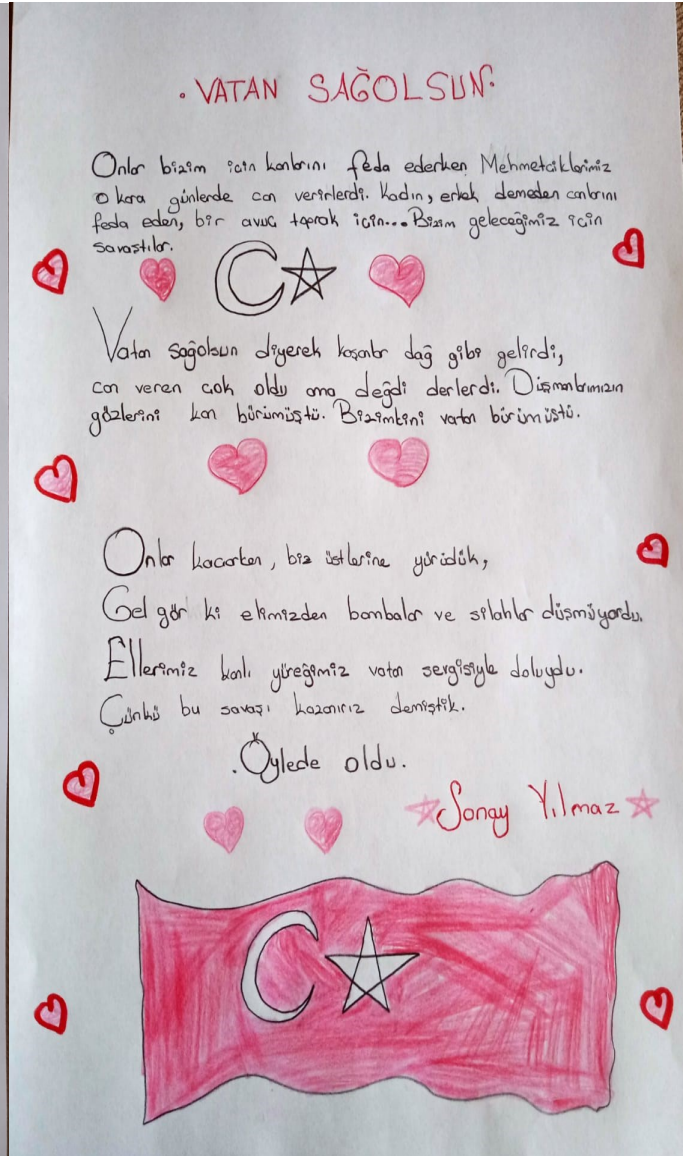 . VATAN SAĞOLSUN.
Onlar bizim için kanlarını feda ederken Mehmetciklerimiz
o kara günlerde can verirlerdi. Kadın, erkek demeden canlarını
feda eden, bir avuç toprak için... Bizim geleceğimiz için
savaştılar.
Vatan sağolsun diyerek koşanlar dağ gibi gelirdi,
can veren çok oldu ama değdi derlerdi. Düşmanlarımızın
gözlerini kan bürümüştü. Bizimkini vatan bürümüştü.
Onlar kaçarken, biz üstlerine yürüdük,
Gel gör ki elimizden bombalar ve silahlar düşmüyordu.
Ellerimiz kanlı yüreğimiz vatan sergisiyle doluydu.
Çünkü bu savaşı kazanırız demiştik.
. Öylede oldu.
Songy Yılmaz